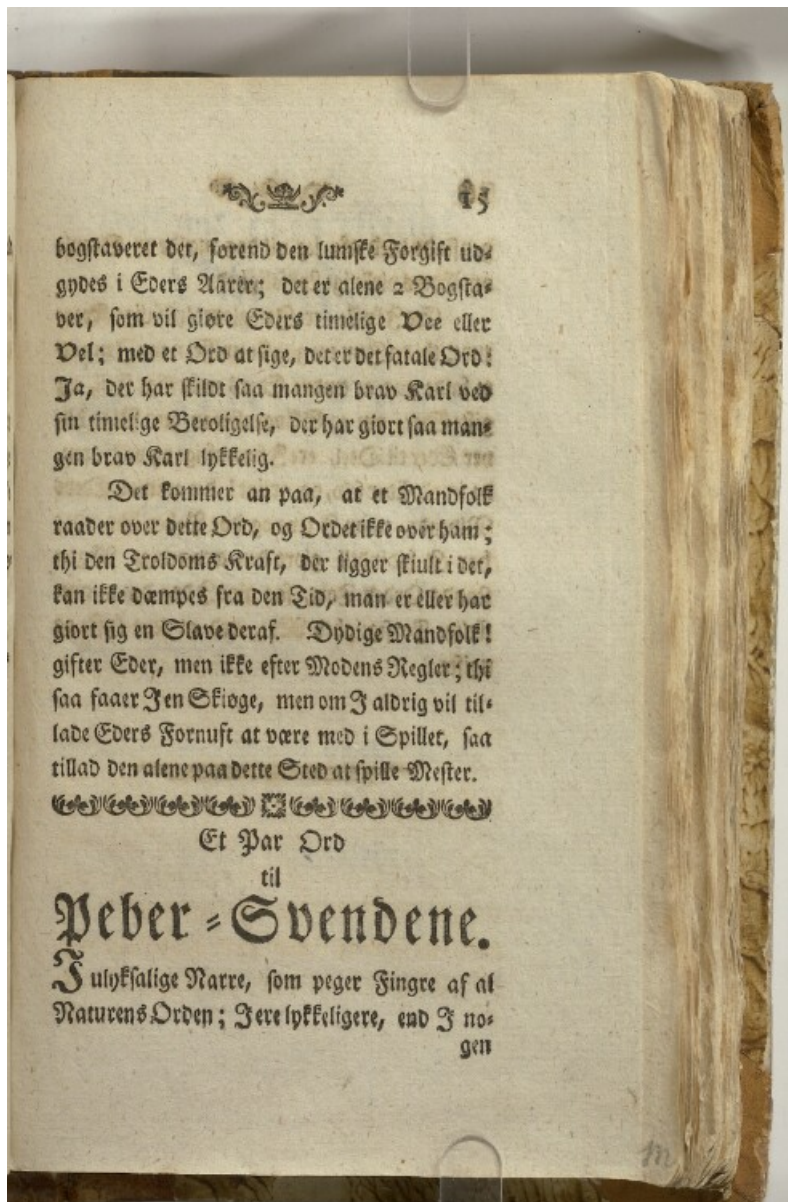 15
bogstaveret det, førend den lumske Forgift ud-
gydes i Eders Aarer; det er alene 2 Bogsta-
ver, som vil giøre Eders timelige Vee eller
Vel; med et Ord at sige, det er det fatale Ord:
Ja, der har skildt saa mangen brav Karl ved
sin timelige Beroligelse, der har giort saa man-
gen brav Karl lykkelig.
Det kommer an paa, at et Mandfolk
raader over dette Ord, og Ordet ikke over ham;
thi den Troldoms Kraft, der ligger skiult i det,
kan ikke dæmpes fra den Tid, man er eller har
giort sig en Slave deraf. Dydige Mandfolk!
gifter Eder, men ikke efter Modens Regler; thi
saa faaer I en Skiøge, men om I aldrig vil til-
lade Eders Fornuft at være med i Spillet, saa
tillad den alene paa dette Sted at spille Mester.
Et Par Ord
til
Peber-Svendene.
I ulyksalige Narre, som peger Fingre af al
Naturens Orden; I ere lykkeligere, end I no-
gen
m